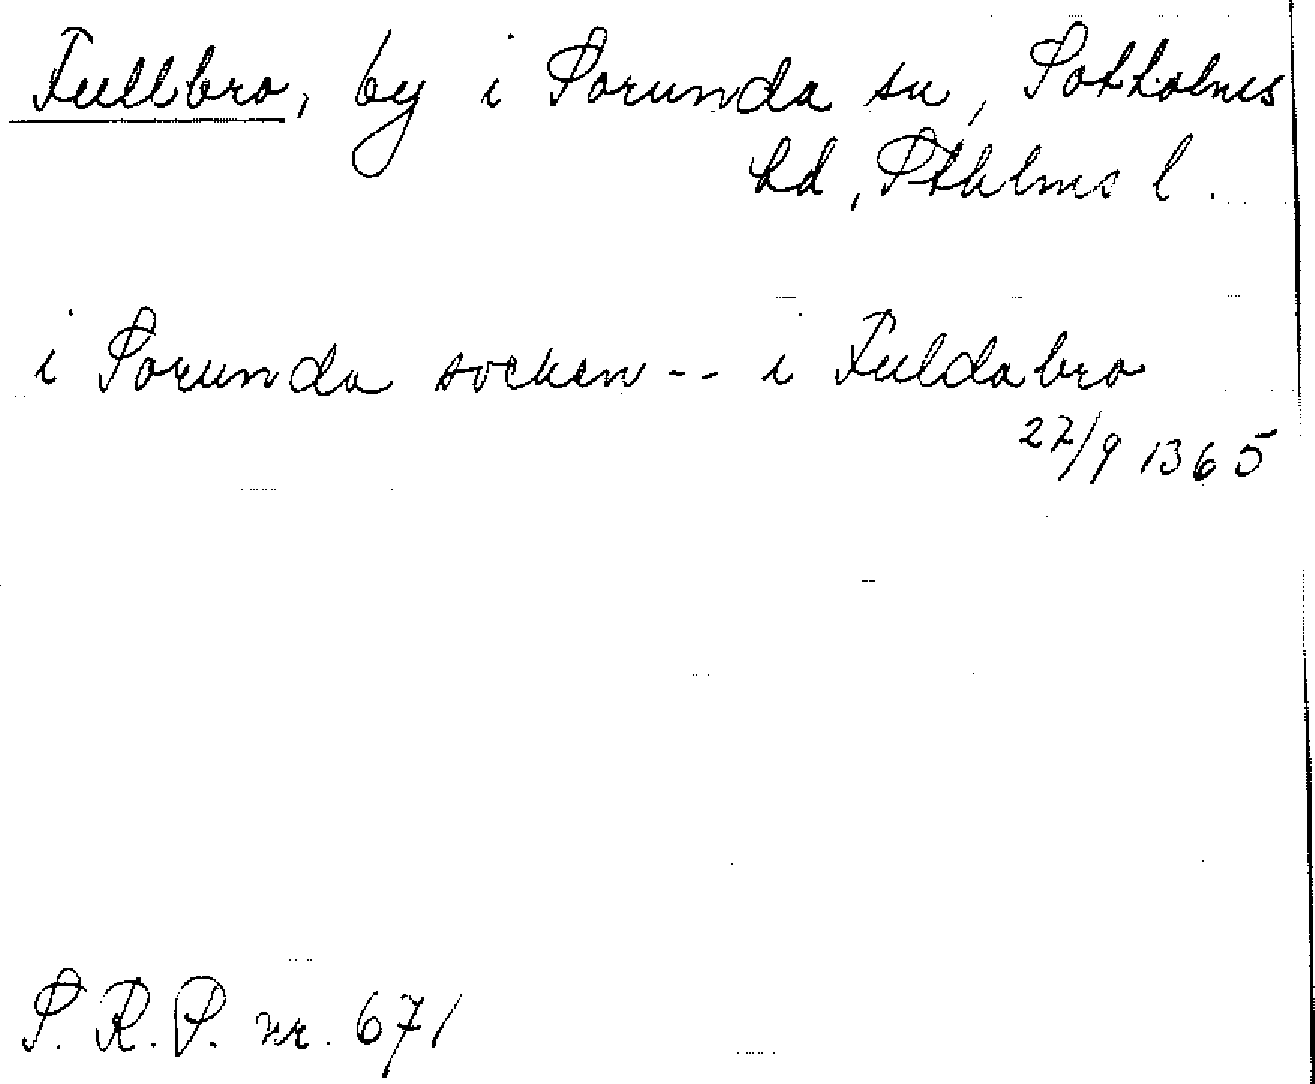 Fullbro, by i Sorunda sn, Sotholms
hd, Sthlms l.
i Sorunda socken -- i Fuldabro
27/9 1365
S. R. P. nr. 671